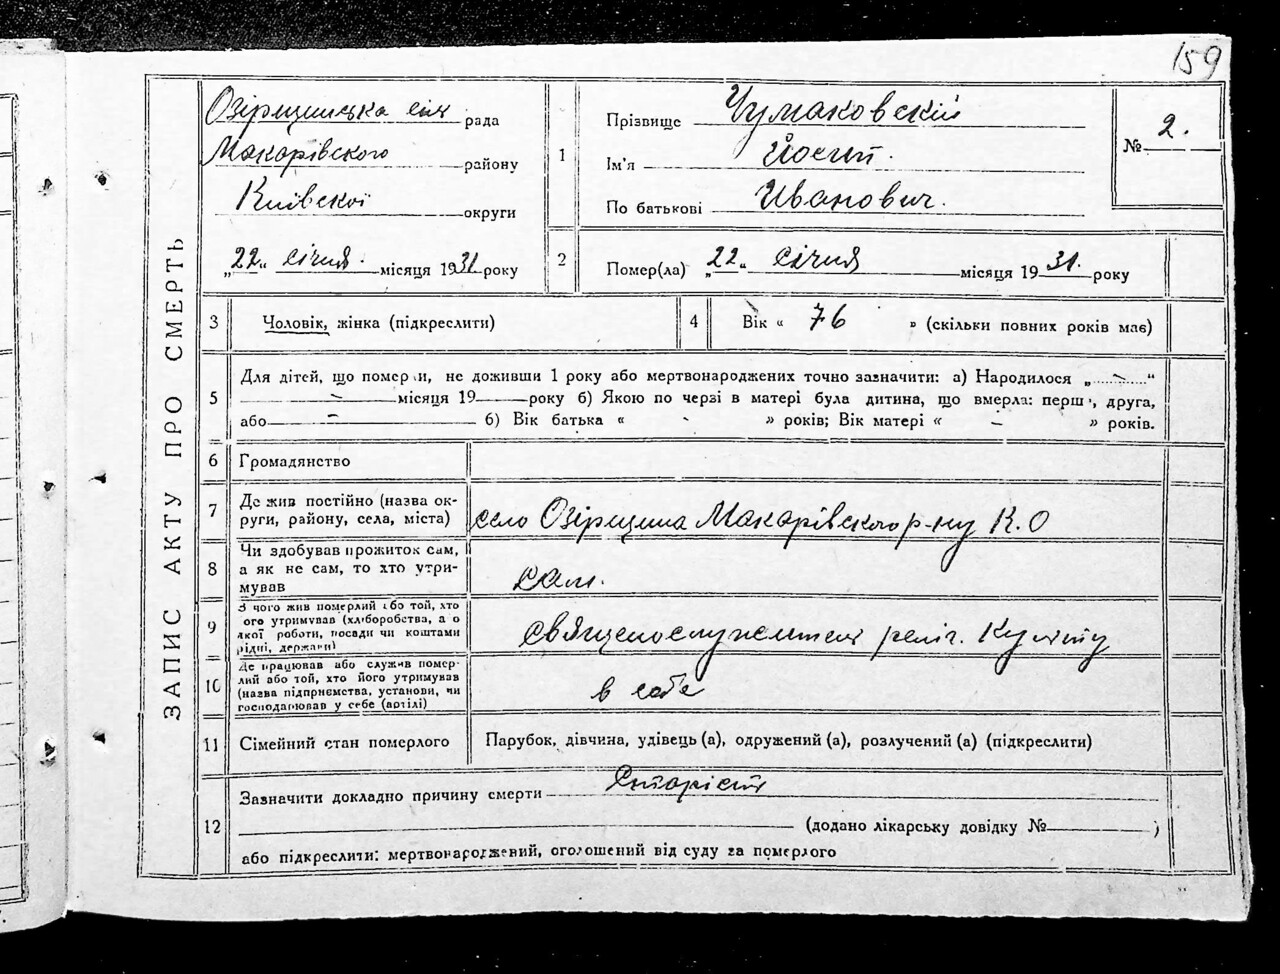 159
ЗАПИС АКТУ ПРО СМЕРТЬ
Озірщинська сіл рада
Макарівского району
Київскої округи
„22“ січня місяця 1931 року
1 Прізвище Чумаковскій
Ім'я Йосип.
По батькові Иванович.
№ 2.
2 Помер(ла) „22“ січня місяця 1931. року
3 Чоловік, жінка (підкреслити)
4 Вік « 76 » (скільки повних років має)
5 Для дітей, що померли, не доживши 1 року або мертвонароджених точно зазначити: а) Народилося „ — “
— місяця 19 — року б) Якою по черзі в матері була дитина, що вмерла: перш , друга,
або — б) Вік батька « - » років; Вік матері « — » років.
6 Громадянство
7 Де жив постійно (назва ок-
руги, району, села, міста)
село Озірщина Макарівского р-ну К. О
8 Чи здобував прожиток сам,
а як не сам, то хто утри-
мував
сам.
9 З чого жив померлий або той, хто
ого утримував (хліборобства, а о
якої роботи, посади чи коштами
рідні, держави)
священослужитель реліг. Культу
10 Де працював або служив помер-
лий або той, хто його утримував
(назва підприємства, установи, чи
господарював у себе (артілі)
в себе
11 Сімейний стан померлого
Парубок, дівчина, удівець (а), одружений (а), розлучений (а) (підкреслити)
12 Зазначити докладно причину смерти Старість
(додано лікарську довідку № )
або підкреслити: мертвонароджений, оголошений від суду за померлого